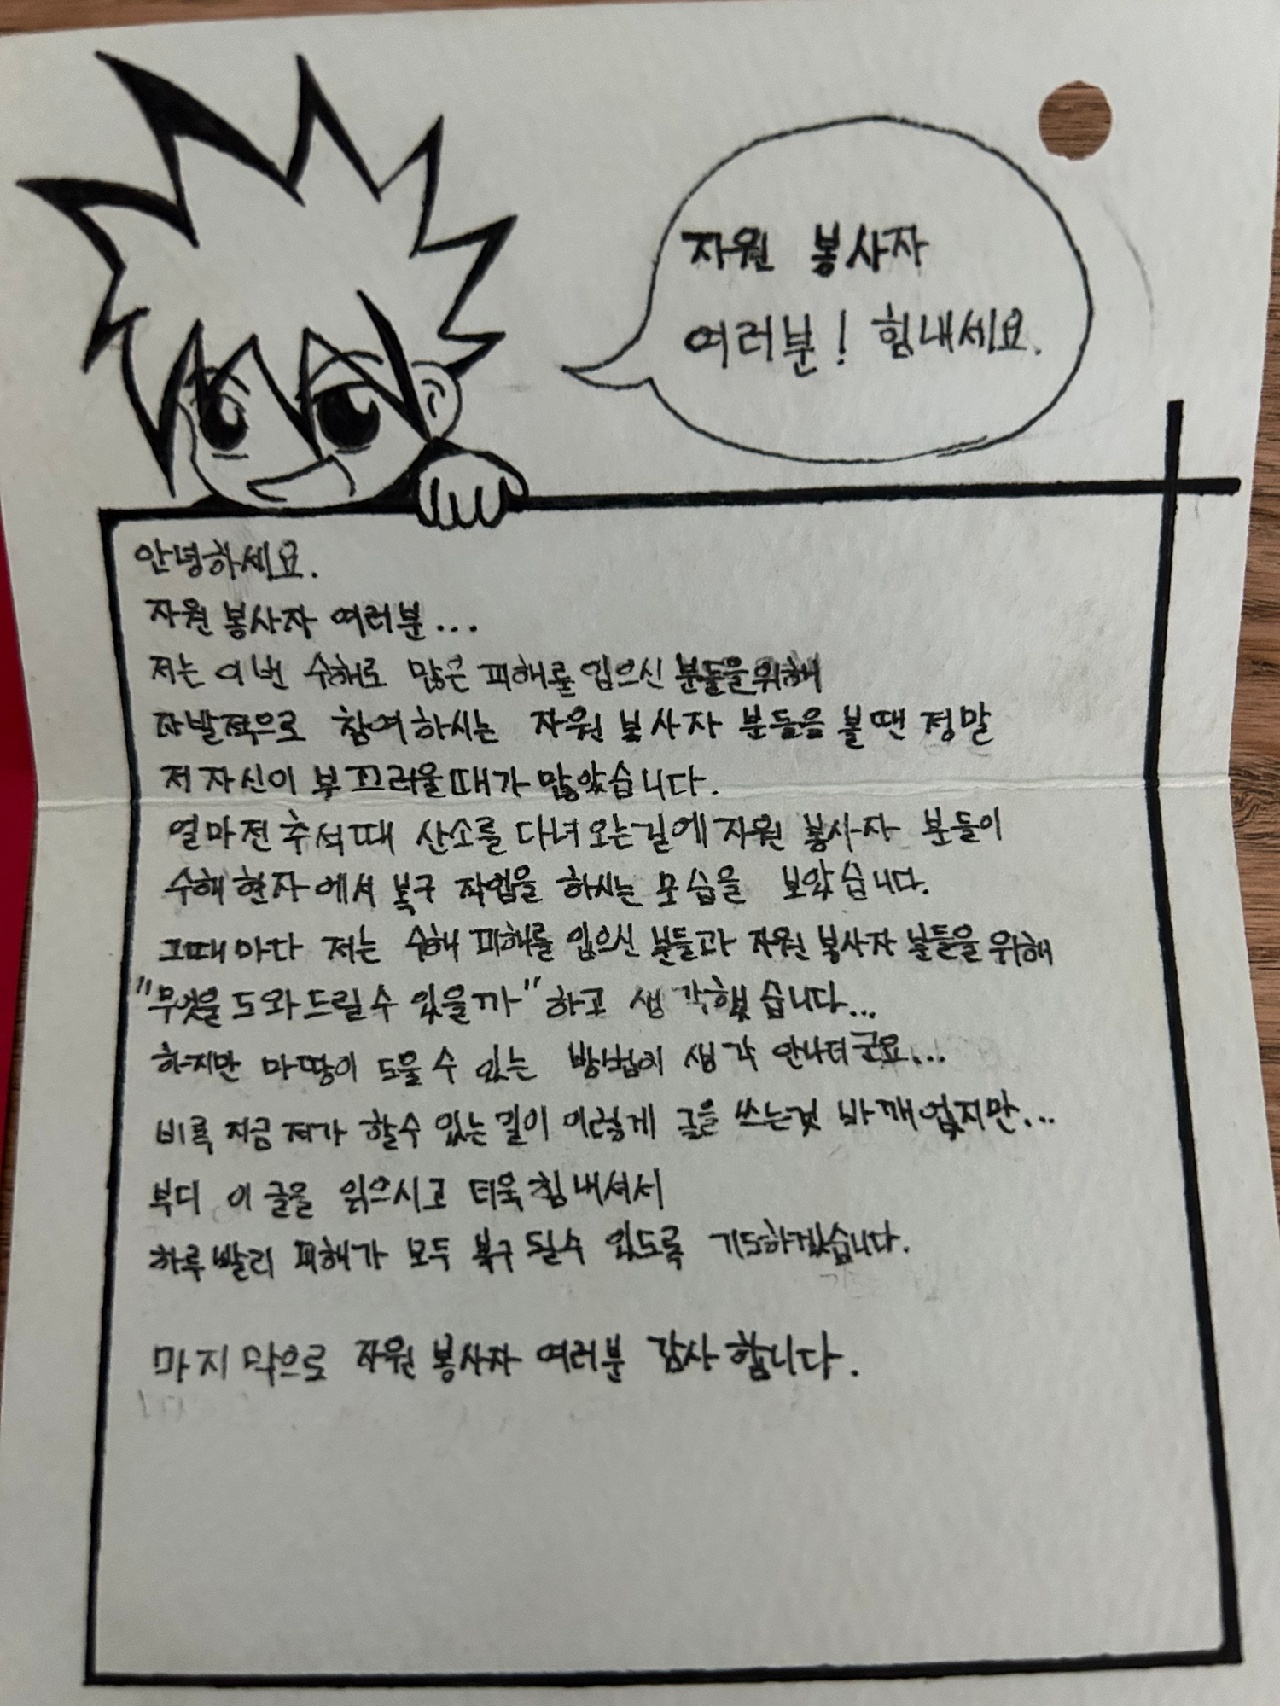 자원 봉사자
여러분! 힘내세요.
안녕하세요.
자원 봉사자 여러분...
저는 이번 수해로 많은 피해를 입으신 분들을위해
자발적으로 참여하시는 자원 봉사자 분들을 볼땐 정말
저 자신이 부끄러울때가 많았습니다.
얼마전 추석때 산소를 다녀오는길에 자원 봉사자 분들이
수해 현장에서 복구 작업을 하시는 모습을 보았습니다.
그때마다 저는 수해 피해를 입으신 분들과 자원 봉사자 분들을 위해
"무엇을 도와드릴수 있을까" 하고 생각했습니다...
하지만 마땅이 도울 수 있는 방법이 생각 안나더군요...
비록 지금 저가 할수 있는길이 이렇게 글을 쓰는것 바깨없지만...
부디 이 글을 읽으시고 더욱 힘내셔서
하루 빨리 피해가 모두 복구 될수 있도록 기도하겠습니다.
마지막으로 자원 봉사자 여러분 감사합니다.